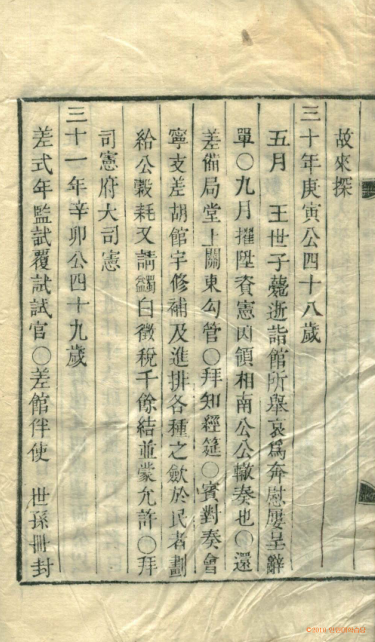 故來探
三十年庚寅公四十八歲
五月 王世子薨逝詣館所舉哀爲奔慰屢呈辭
單○九月擢陞資憲因領相南公公轍奏也○還
差備局堂上關東勾管○拜知經筵○賓對奏會
寧支差胡館宇修補及進排各種之斂於民者劃
給公穀耗又請蠲白徵稅千餘結並蒙允許○拜
司憲府大司憲
三十一年辛卯公四十九歲
差式年監試覆試試官○差館伴使 世孫冊封